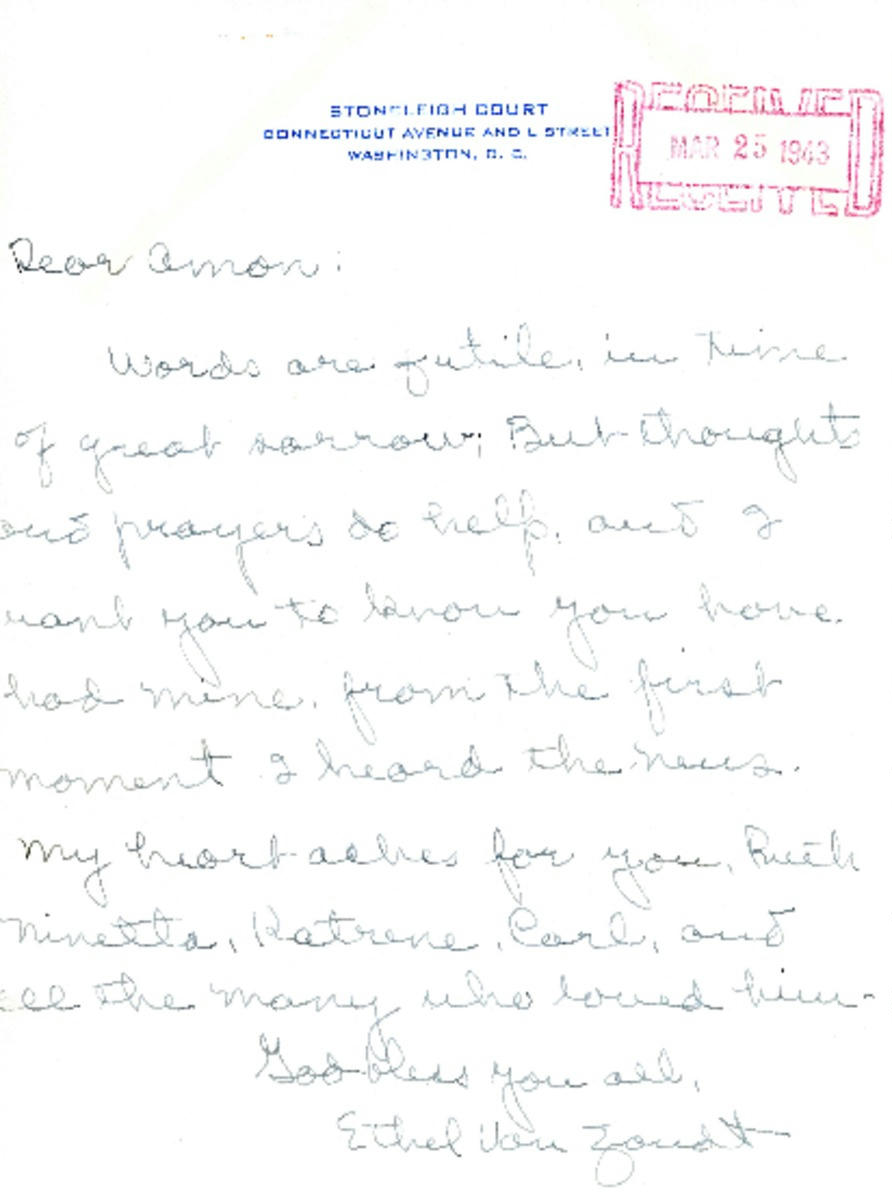 STONELEIGH COURT
CONNECTICUT AVENUE AND L STREET
WASHINGTON, D. C.
RECEIVED
MAR 25 1943
RECEIVED
Dear Amon:
Words are futile, in time
of great sorrow; But thoughts
and prayers do help, and I
want you to know you have
had mine, from the first
moment I heard the news.
My heart aches for you, Ruth
Ninetta, Katrene, Carl, and
all the many who loved him-
God bless you all,
Ethel Van Zandt